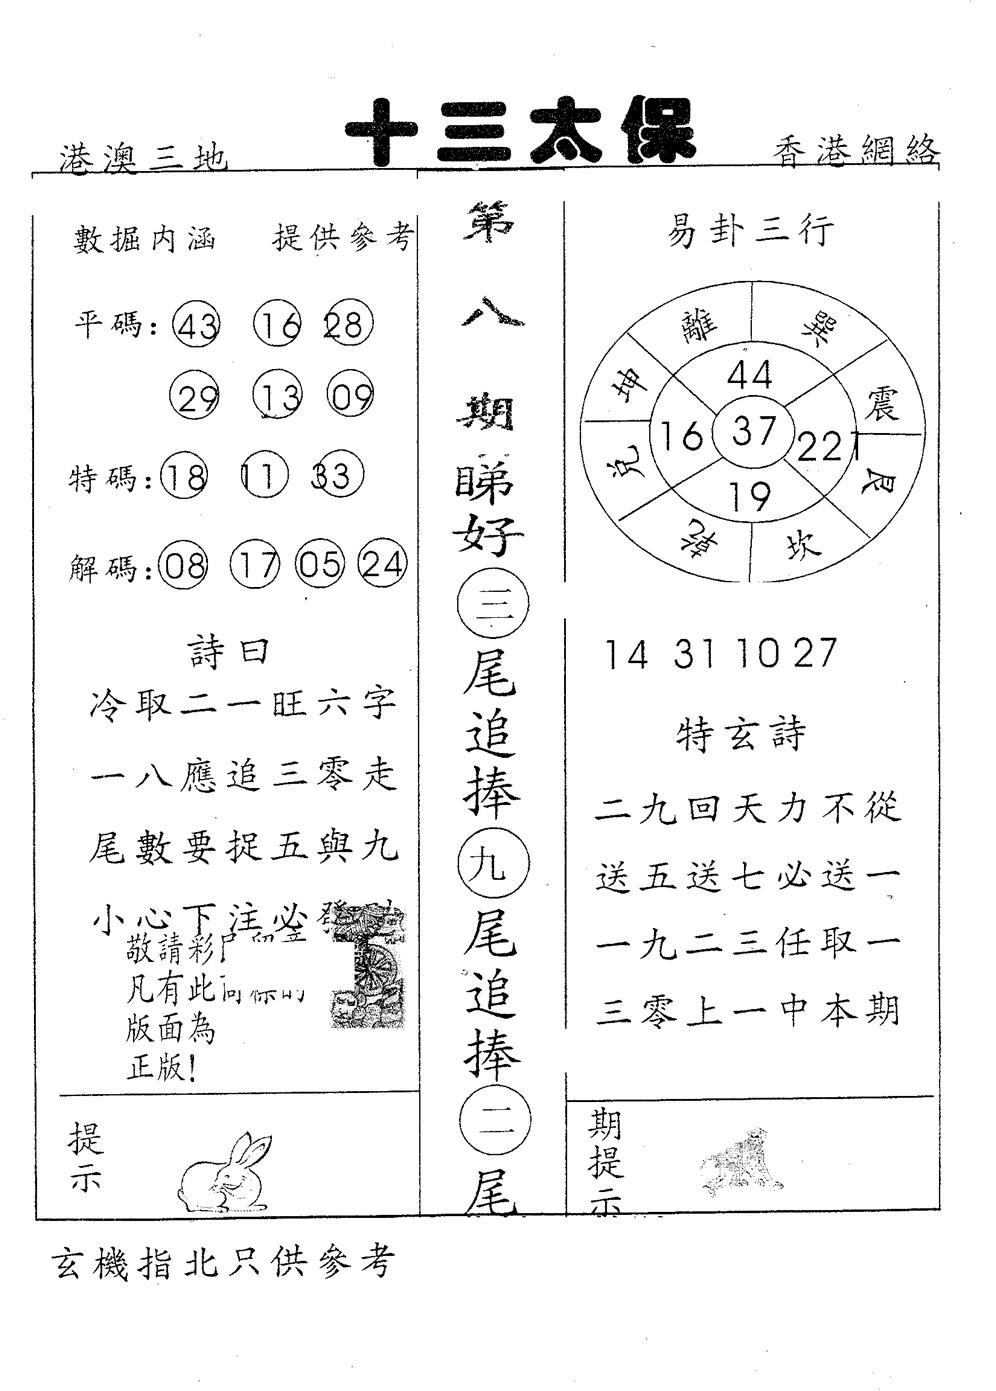 十三太保
港澳三地
香港網絡
數掘内涵 提供參考
平碼: 43 16 28
29 13 09
特碼: 18 11 33
解碼: 08 17 05 24
詩曰
冷取二一旺六字
一八應追三零走
尾數要捉五與九
小心下注必發
敬請彩
凡有此
版面為
正版!
提示
第八期
睇好
三
尾追捧
九
尾追捧
二
尾
易卦三行
離 巽
坤 震
兌 艮
乾 坎
44
16 37 221
19
14 31 10 27
特玄詩
二九回天力不從
送五送七必送一
一九二三任取一
三零上一中本期
期提示
玄機指北只供參考